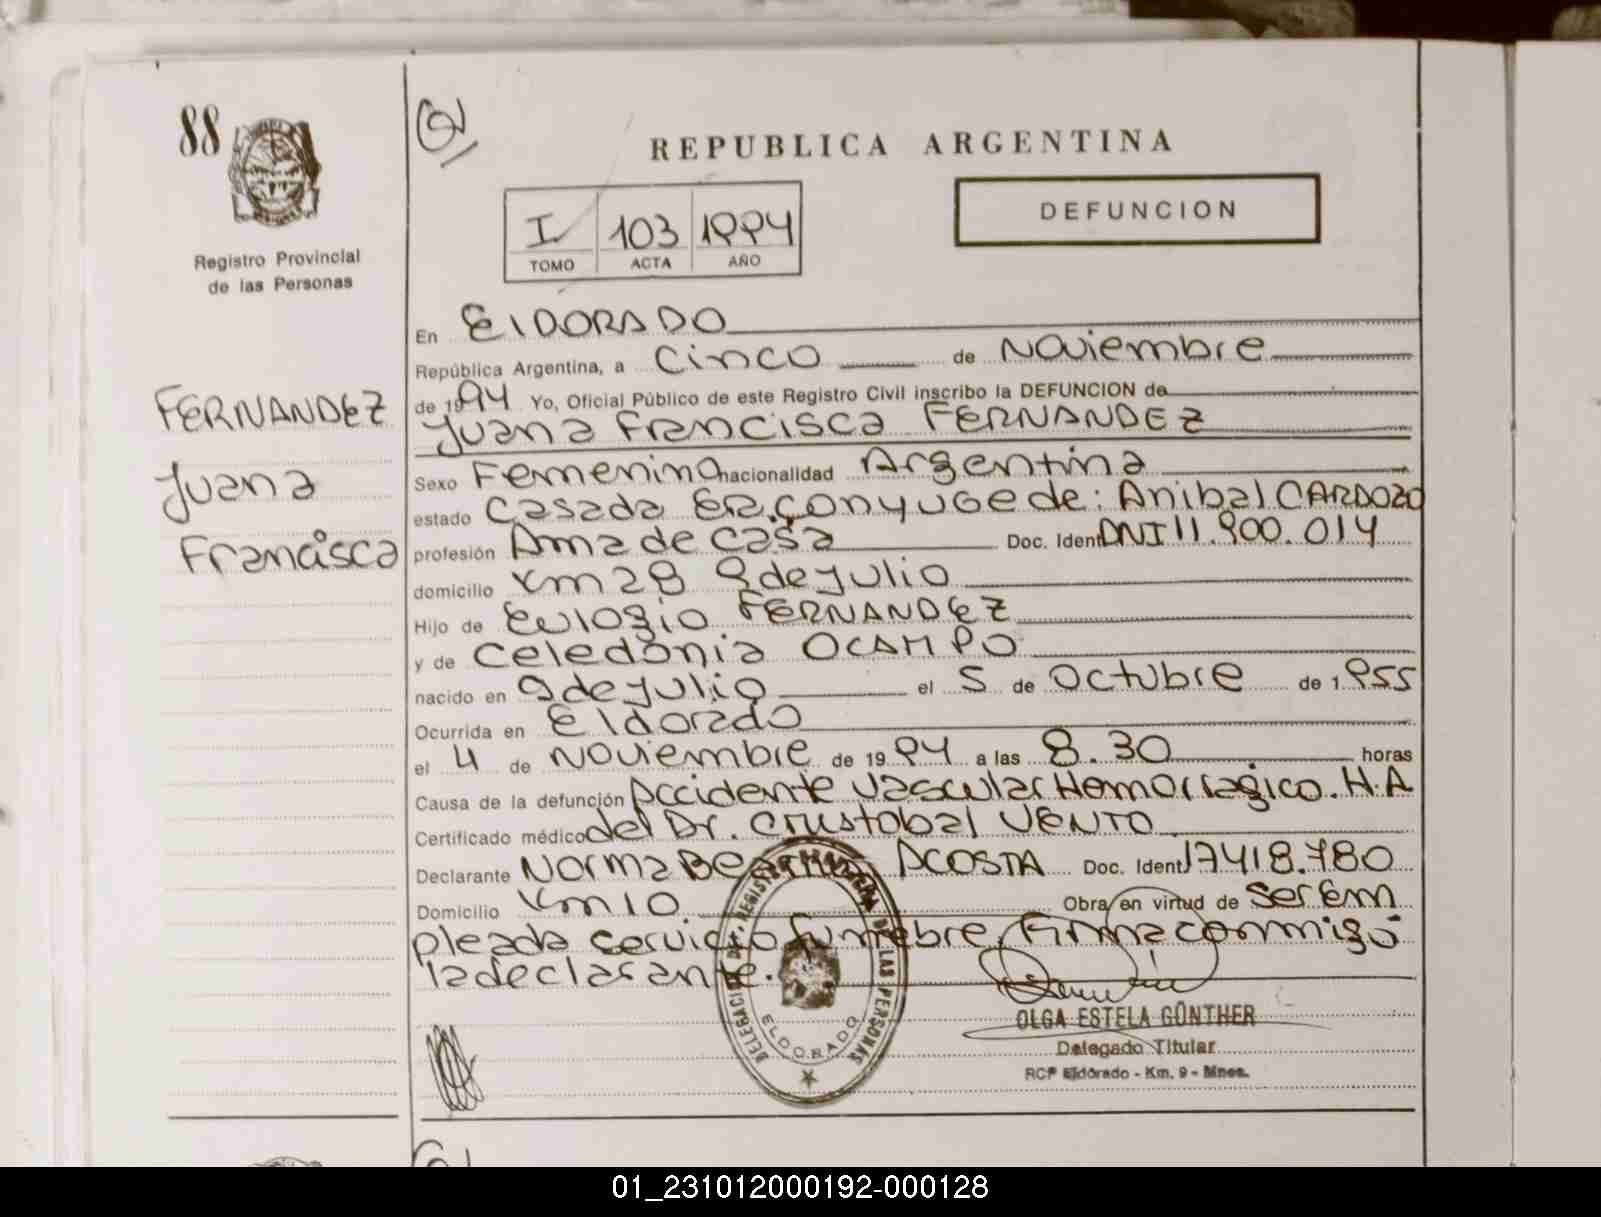 88
Registro Provincial
de las Personas
REPUBLICA ARGENTINA
I 103 1994
TOMO ACTA AÑO
DEFUNCION
FERNANDEZ
Juana
Francisca
En ElDORADO
República Argentina, a cinco de Noviembre
de 1994 Yo, Oficial Público de este Registro Civil inscribo la DEFUNCION de
Juana Francisca FERNANDEZ
Sexo Femenino nacionalidad Argentina
estado Casada Era conyuge de: Anibal CARDOZO
profesión Ama de casa Doc. Ident. DNI 11.900.014
domicilio Km 28 9 de Julio
Hijo de Eulogio FERNANDEZ
y de Celedonia OCAMPO
nacido en 9 de Julio el 5 de Octubre de 1955
Ocurrida en Eldorado
el 4 de Noviembre de 1994 a las 8.30 horas
Causa de la defunción Accidente Vascular Hemorragico. H.A
Certificado médico del Dr. Cristobal VENTO
Declarante Norma Beatriz ACOSTA Doc. Ident. 17418.780
Domicilio Km 10 Obra en virtud de ser em
pleada servicio funebre. Firma conmigo
la declarante.
DELEGACION REGISTRO DE LAS PERSONAS
ELDORADO
OLGA ESTELA GÜNTHER
Delegado Titular
RCP Eldorado - Km. 9 - Mnes.
01_231012000192-000128